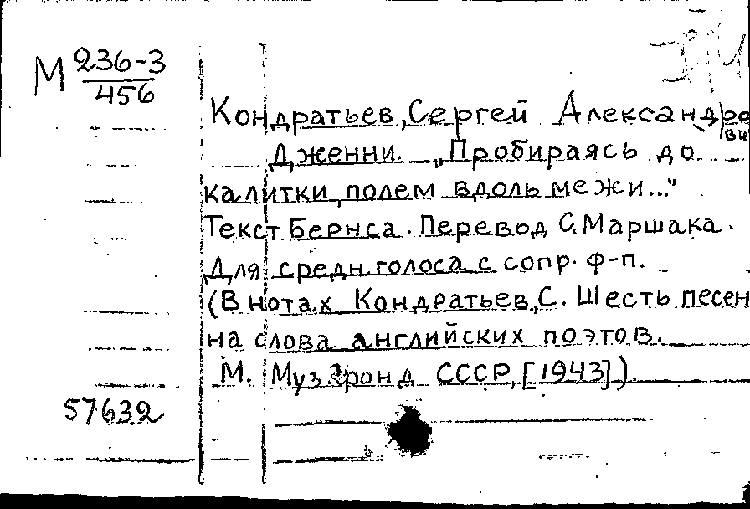 М 236-3
456
Кондратьев, Сергей Александрови
Дженни. „Пробираясь до
калитки полем вдоль межи..."
Текст Бернса. Перевод С. Маршака.
Для средн. голоса с сопр. ф-п.
(В нотах Кондратьев, С. Шесть песен
на слова английских поэтов.
М. Музфонд СССР, [1943])
57632